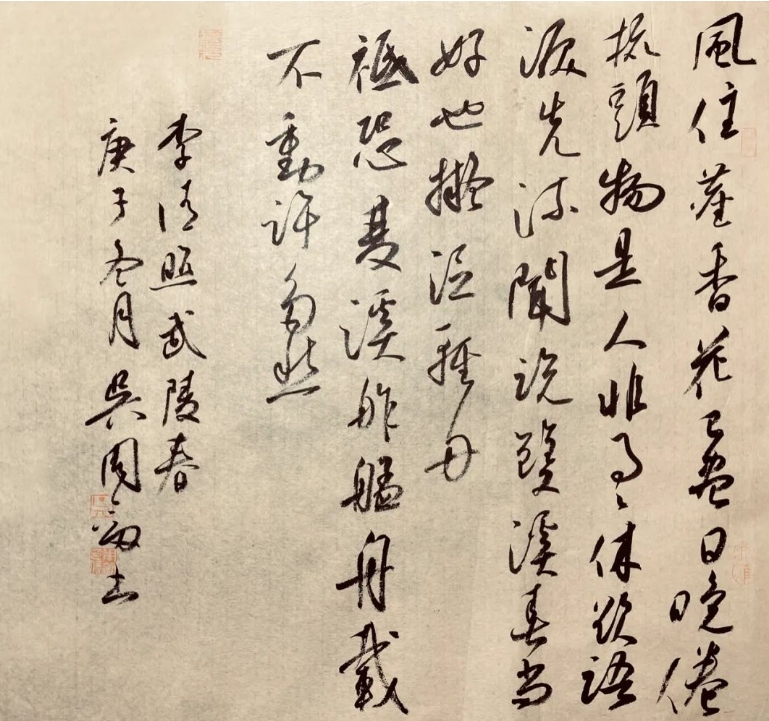 風住塵香花已盡日晚倦
梳頭物是人非事々休欲語
淚先流聞說雙溪春尚
好也擬泛輕舟
祗恐雙溪舴艋舟載
不動許多愁
李清照武陵春
庚子冬月吳國富書